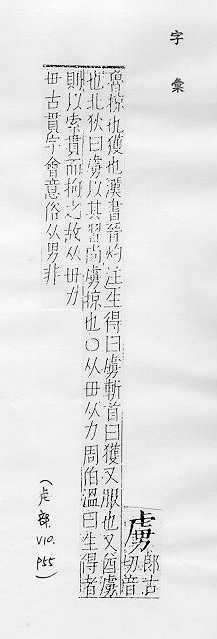 字彙
虜
郎古
切音
魯掠也獲也漢書晉灼注生得曰虜斬首曰獲又服也又酋虜
也北狄曰虜以其習尚虜掠也○从毌从力周伯溫曰生得者
則以索貫而拘之故从毌力
毌古貫字會意俗从男非
(虍部. V10. P55)